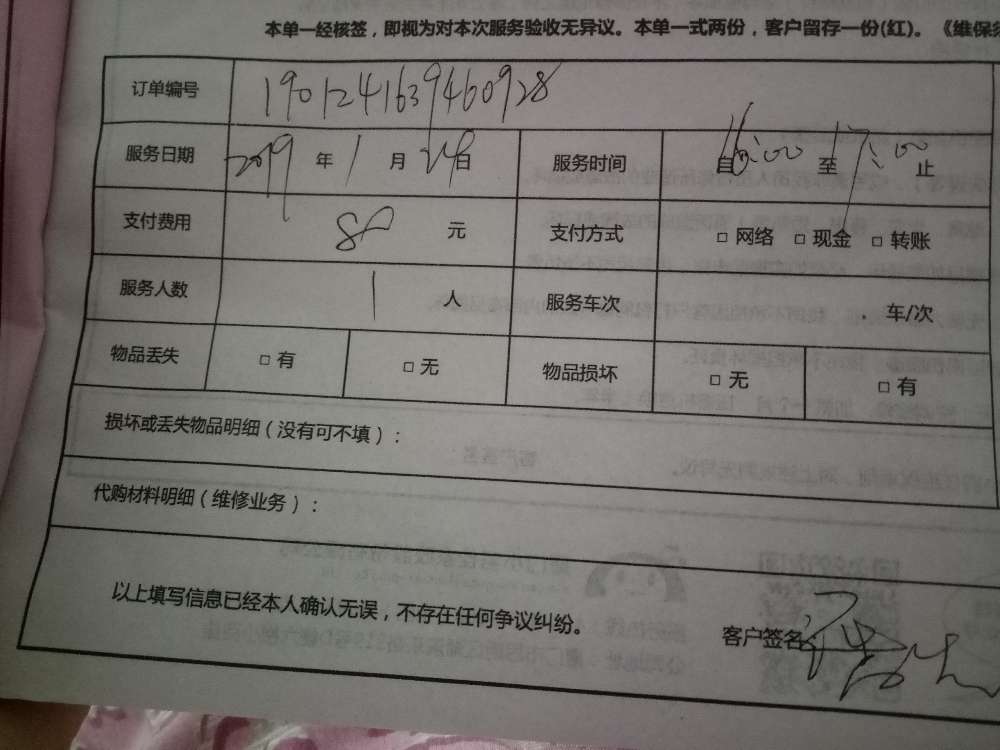 本单一经核签，即视为对本次服务验收无异议。本单一式两份，客户留存一份(红)。《维保
订单编号 1901241639460928
服务日期 2019 年 1 月 24 日 服务时间 自 16:00 至 17:00 止
支付费用 80 元 支付方式 □ 网络 □ 现金 □ 转账
服务人数 1 人 服务车次 车/次
物品丢失 □ 有 □ 无 物品损坏 □ 无 □ 有
损坏或丢失物品明细（没有可不填）：
代购材料明细（维修业务）：
以上填写信息已经本人确认无误，不存在任何争议纠纷。
客户签名